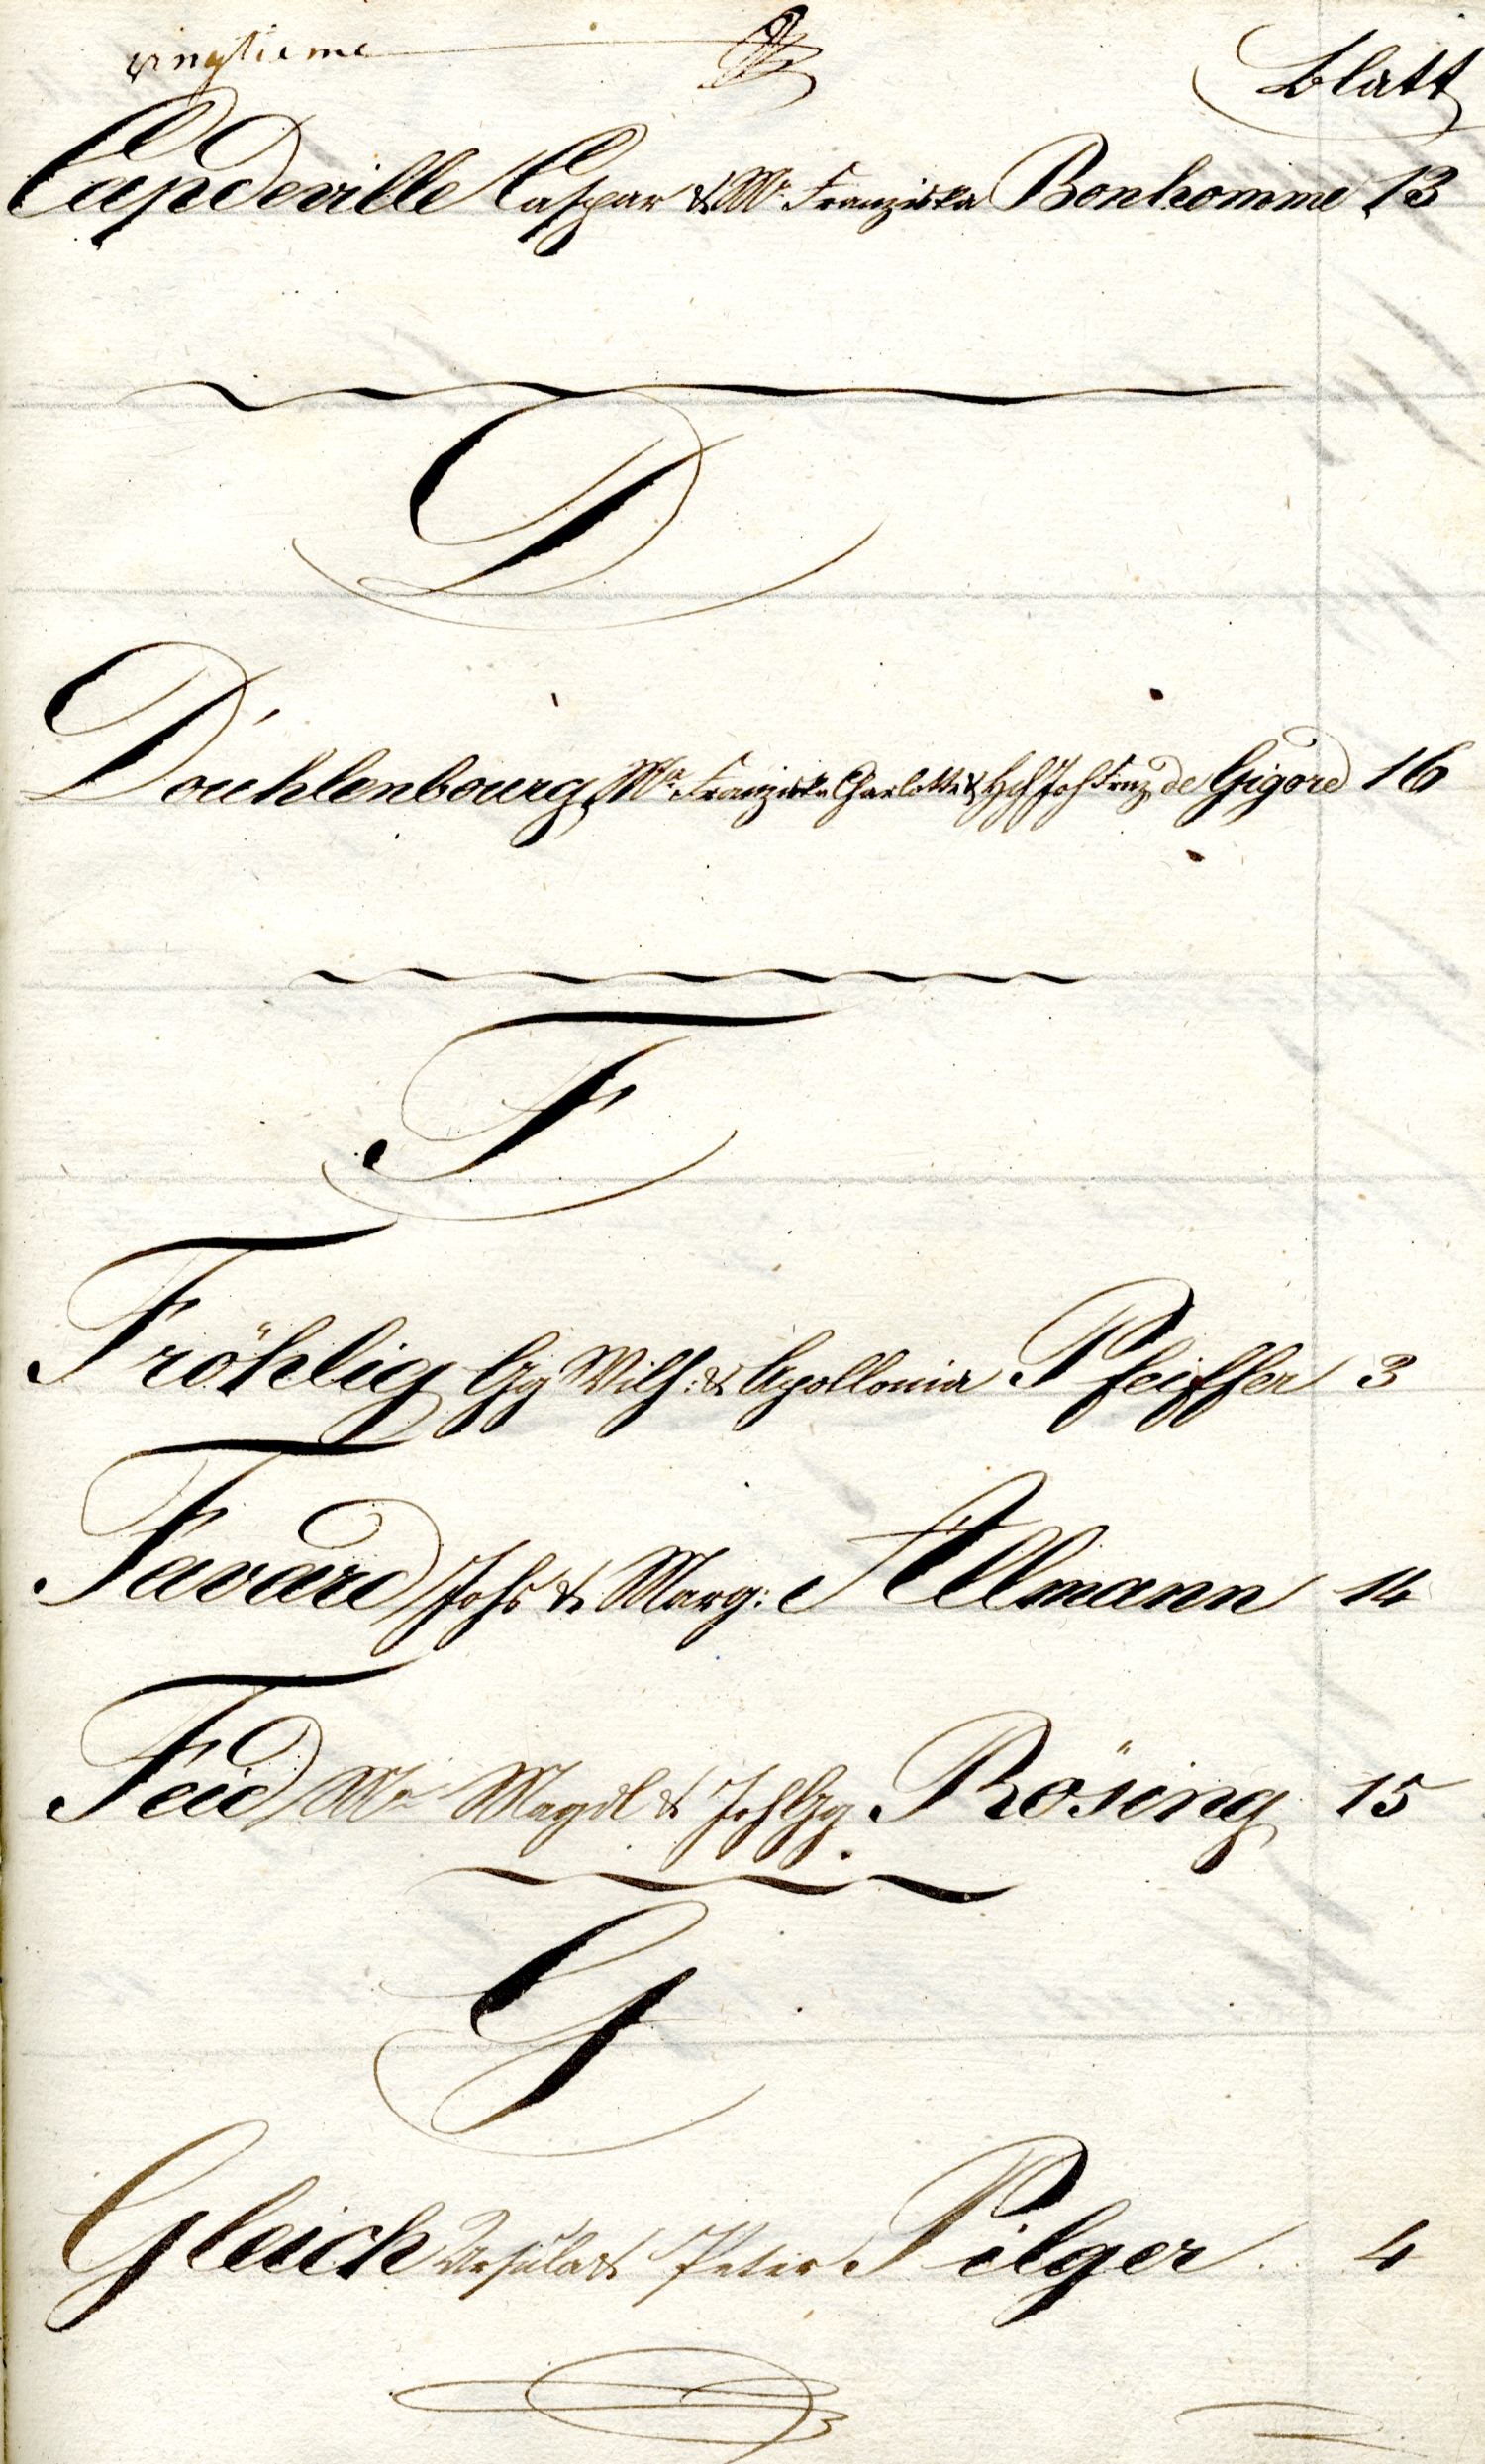 vingtieme
Blatt
Capdeville Caspar & Ma Franziska Bonhomme 13
D
D'ouhlenbourg Ma Franziska Charlotte & Joh Frnz de Gigord 16
F
Fröhlig Gg Wilh: & Apollonia Pfeiffer 3
Favard Johs & Marg: Allmann 14
Feid Ma Magdl & Joh Gg Rösing 15
G
Gleich Ursula & Peter Pilger 4